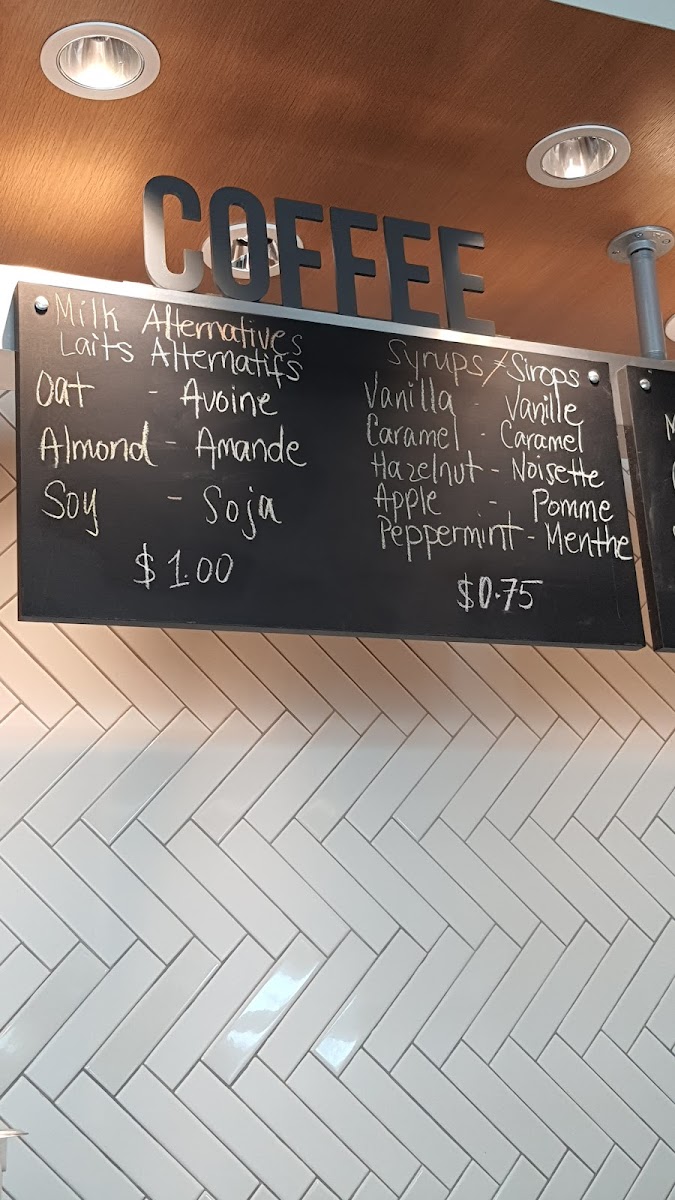 COFFEE
Milk Alternatives
Laits Alternatifs
Oat - Avoine
Almond - Amande
Soy - Soja
$1.00
Syrups/Sirops
Vanilla - Vanille
Caramel - Caramel
Hazelnut - Noisette
Apple - Pomme
Peppermint - Menthe
$0.75